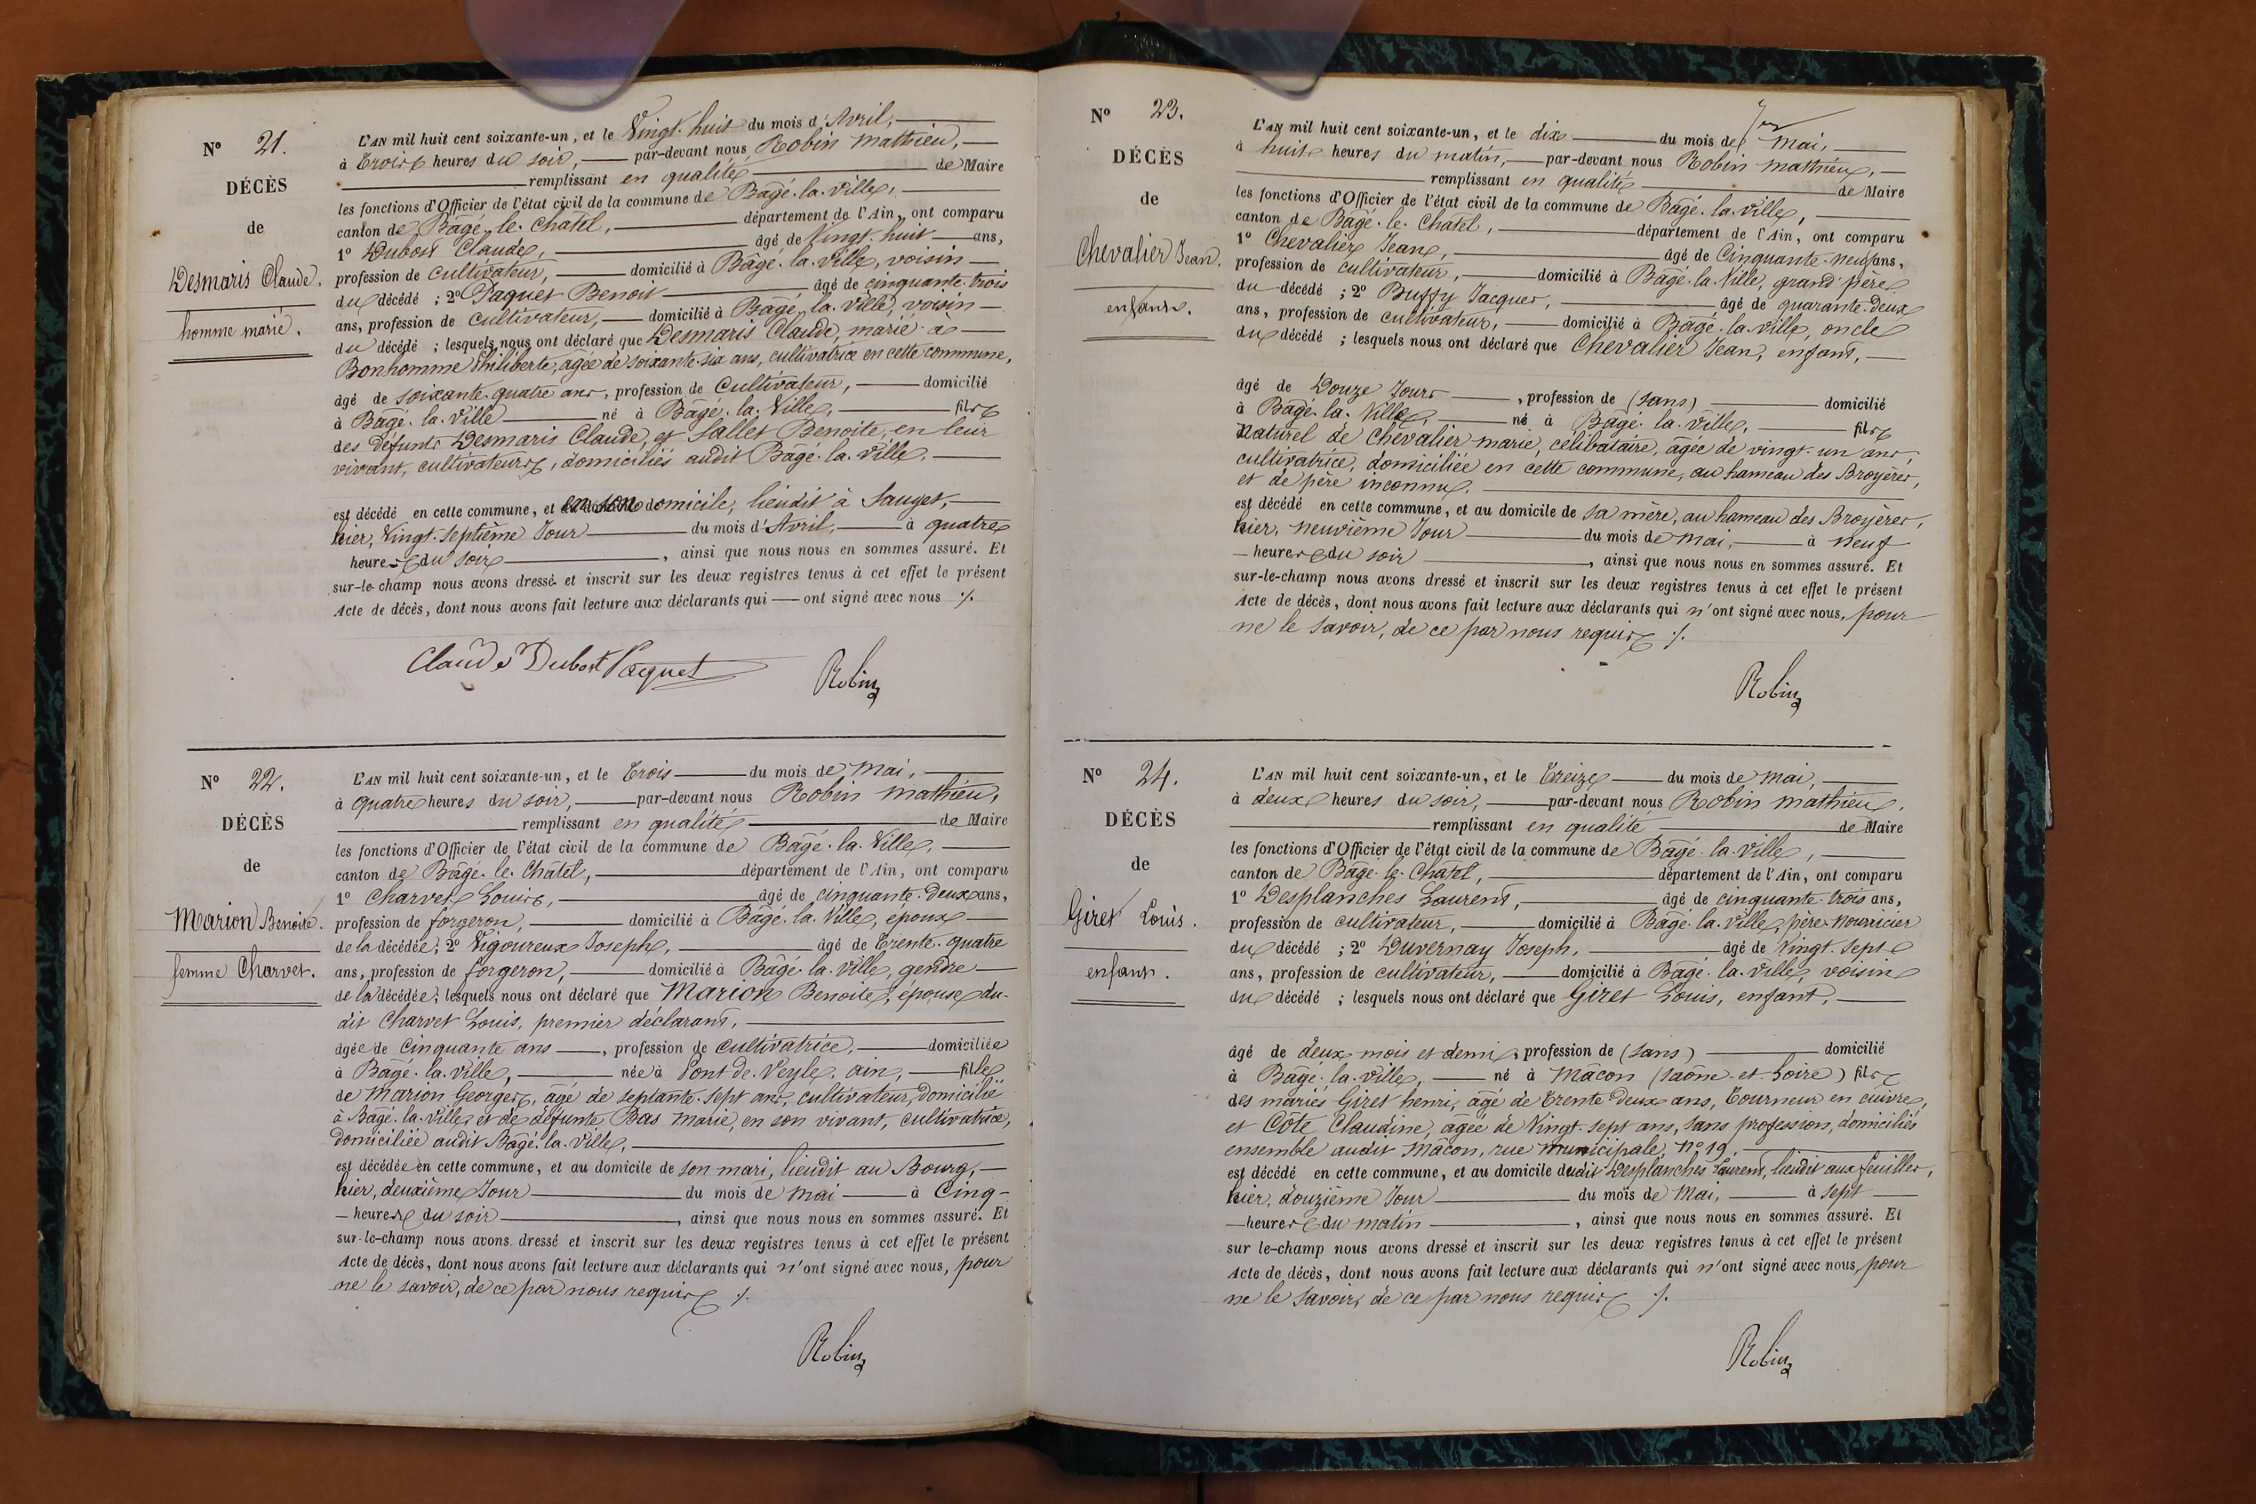 N° 21.
DÉCÈS
de
Desmaris Claude.
homme marié.
L'AN mil huit cent soixante-un, et le Vingt-huit du mois d'Avril,
à trois heures du soir, par-devant nous Robin Mathieu,
remplissant en qualité de Maire
les fonctions d'Officier de l'état civil de la commune de Bâgé-la-Ville,
canton de Bâgé-le-Châtel, département de l'Ain, ont comparu
1° Dubost Claude, âgé de Vingt-huit ans,
profession de cultivateur, domicilié à Bâgé-la-Ville, voisin
du décédé ; 2° Paquet Benoit âgé de cinquante-trois
ans, profession de cultivateur, domicilié à Bâgé-la-Ville, voisin
du décédé ; lesquels nous ont déclaré que Desmaris Claude, marié à
Bonhomme Philiberte, âgée de soixante-six ans, cultivatrice en cette commune,
âgé de soixante-quatre ans, profession de cultivateur, domicilié
à Bâgé-la-Ville né à Bâgé-la-Ville, fils
des défunts Desmaris Claude, et Sallet Benoite, en leur
vivant, cultivateurs, domiciliés audit Bâgé-la-Ville.
est décédé en cette commune, et en son domicile, lieudit à Sauget,
hier, Vingt-septième Jour du mois d'Avril, à quatre
heures du soir, ainsi que nous nous en sommes assuré. Et
sur-le-champ nous avons dressé et inscrit sur les deux registres tenus à cet effet le présent
Acte de décès, dont nous avons fait lecture aux déclarants qui ont signé avec nous ./.
Claude Dubost Paquet Robin
N° 22.
DÉCÈS
de
Marion Benoite.
femme Charvet.
L'AN mil huit cent soixante-un, et le trois du mois de Mai,
à quatre heures du soir, par-devant nous Robin Mathieu,
remplissant en qualité de Maire
les fonctions d'Officier de l'état civil de la commune de Bâgé-la-Ville,
canton de Bâgé-le-Châtel, département de l'Ain, ont comparu
1° Charvet Louis, âgé de cinquante-deux ans,
profession de forgeron, domicilié à Bâgé-la-Ville, époux
de la décédée ; 2° Vigoureux Joseph, âgé de trente-quatre
ans, profession de forgeron, domicilié à Bâgé-la-Ville, gendre
de la décédée ; lesquels nous ont déclaré que Marion Benoite, épouse du-
dit Charvet Louis, premier déclarant,
âgée de cinquante ans, profession de cultivatrice, domiciliée
à Bâgé-la-Ville, née à Pont-de-Veyle, ain, fille
de Marion Georges, âgé de septante-sept ans, cultivateur, domicilié
à Bâgé-la-Ville et de défunte Bas Marie, en son vivant, cultivatrice,
domiciliée audit Bâgé-la-Ville,
est décédée en cette commune, et au domicile de son mari, lieudit au Bourg,
hier, deuxième Jour du mois de Mai à Cinq
heures du soir, ainsi que nous nous en sommes assuré. Et
sur-le-champ nous avons dressé et inscrit sur les deux registres tenus à cet effet le présent
Acte de décès, dont nous avons fait lecture aux déclarants qui n'ont signé avec nous, pour
ne le savoir, de ce par nous requis ./.
Robin
N° 23.
DÉCÈS
de
Chevalier Jean.
enfant.
L'AN mil huit cent soixante-un, et le dix du mois de Mai,
à huit heures du matin, par-devant nous Robin Mathieu,
remplissant en qualité de Maire
les fonctions d'Officier de l'état civil de la commune de Bâgé-la-Ville,
canton de Bâgé-le-Châtel, département de l'Ain, ont comparu
1° Chevalier Jean, âgé de Cinquante-neuf ans,
profession de cultivateur, domicilié à Bâgé-la-Ville, grand-père
du décédé ; 2° Buffy Jacques, âgé de quarante-deux
ans, profession de cultivateur, domicilié à Bâgé-la-Ville, oncle
du décédé ; lesquels nous ont déclaré que Chevalier Jean, enfant,
âgé de Douze Jours, profession de (sans) domicilié
à Bâgé-la-Ville, né à Bâgé-la-Ville, fils
Naturel de Chevalier Marie, célibataire, âgée de vingt-un ans,
cultivatrice, domiciliée en cette commune, au hameau des Broyères,
et de père inconnu.
est décédé en cette commune, et au domicile de sa mère, au hameau des Broyères,
hier, neuvième Jour du mois de Mai, à neuf
heures du soir, ainsi que nous nous en sommes assuré. Et
sur-le-champ nous avons dressé et inscrit sur les deux registres tenus à cet effet le présent
Acte de décès, dont nous avons fait lecture aux déclarants qui n'ont signé avec nous, pour
ne le savoir, de ce par nous requis ./.
Robin
N° 24.
DÉCÈS
de
Giret Louis.
enfant.
L'AN mil huit cent soixante-un, et le treize du mois de Mai,
à deux heures du soir, par-devant nous Robin Mathieu,
remplissant en qualité de Maire
les fonctions d'Officier de l'état civil de la commune de Bâgé-la-Ville,
canton de Bâgé-le-Châtel, département de l'Ain, ont comparu
1° Desplanches Laurent, âgé de cinquante-trois ans,
profession de cultivateur, domicilié à Bâgé-la-Ville, père-nourricier
du décédé ; 2° Duvernay Joseph, âgé de Vingt-sept
ans, profession de cultivateur, domicilié à Bâgé-la-Ville, voisin
du décédé ; lesquels nous ont déclaré que Giret Louis, enfant,
âgé de deux mois et demi, profession de (sans) domicilié
à Bâgé-la-Ville, né à Mâcon (Saône-et-Loire) fils
des mariés Giret henri, âgé de trente-deux ans, tourneur en cuivre,
et Côte Claudine, âgée de Vingt-sept ans, sans profession, domiciliés
ensemble audit Mâcon, rue Municipale, N° 19,
est décédé en cette commune, et au domicile dudit Desplanches Laurent, lieudit aux feuilles,
hier, douzième Jour du mois de Mai, à sept
heures du matin, ainsi que nous nous en sommes assuré. Et
sur le-champ nous avons dressé et inscrit sur les deux registres tenus à cet effet le présent
Acte de décès, dont nous avons fait lecture aux déclarants qui n'ont signé avec nous, pour
ne le savoir, de ce par nous requis ./.
Robin